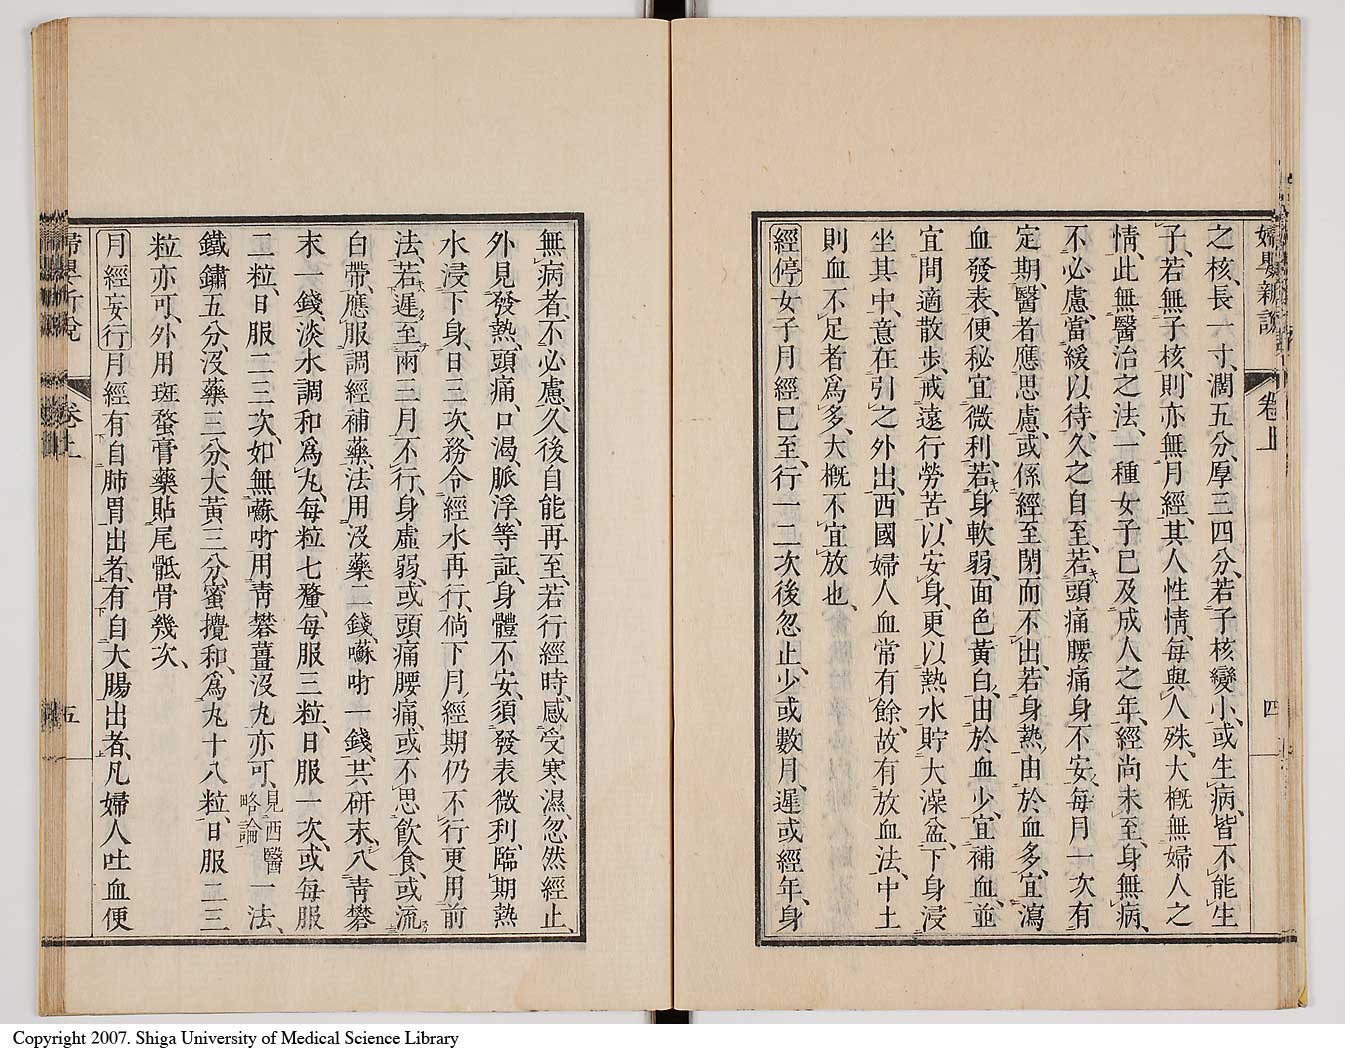 婦嬰新說 卷上 四
之核、長一寸、濶五分、厚三四分、若子核變小、或生病、皆不能生
子、若無子核、則亦無月經、其人性情、每與人殊、大概無婦人之
情、此無醫治之法、一種女子已及成人之年、經尚未至、身無病、
不必慮、當緩以待久之自至、若頭痛腰痛身不安、每月一次有
定期、醫者應思慮、或係經至閉而不出、若身熱、由於血多、宜瀉
血發表、便秘宜微利、若身軟弱、面色黃白、由於血少、宜補血、並
宜間適散步、戒遠行勞苦、以安身、更以熱水貯大澡盆、下身浸
坐其中、意在引之外出、西國婦人血常有餘、故有放血法、中土
則血不足者爲多、大概不宜放也、
經停女子月經已至、行一二次後忽止、少或數月、遲或經年、身
無病者、不必慮、久後自能再至、若行經時、感受寒濕、忽然經止、
外見發熱、頭痛、口渴、脈浮、等証、身體不安、須發表微利、臨期熱
水浸下身、日三次、務令經水再行、倘下月經期仍不行更用前
法、若遲至兩三月不行、身虛弱、或頭痛腰痛、或不思飲食、或流
白帶、應服調經補藥、法用沒藥二錢、囌𠵽一錢、共研末、入青礬
末一錢、淡水調和爲丸、每粒七釐、每服三粒、日服一次、或每服
二粒、日服二三次、如無囌𠵽用青礬薑沒丸亦可、見西醫略論一法、
鐵鏽五分、沒藥三分、大黃三分、蜜攪和、爲丸十八粒、日服二三
粒亦可、外用斑蝥膏藥貼尾骶骨幾次、
月經妄行月經有自肺胃出者、有自大腸出者、凡婦人吐血便
卷上 五
Copyright 2007. Shiga University of Medical Science Library